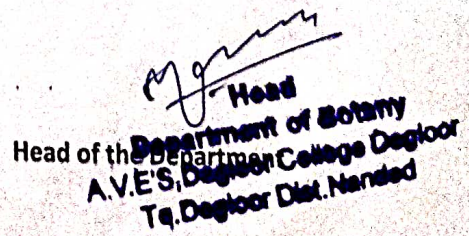 Head
Department of Botany
Head of the Department
A.V.E'S, Degloor College Degloor
Tq.Degloor Dist.Nanded